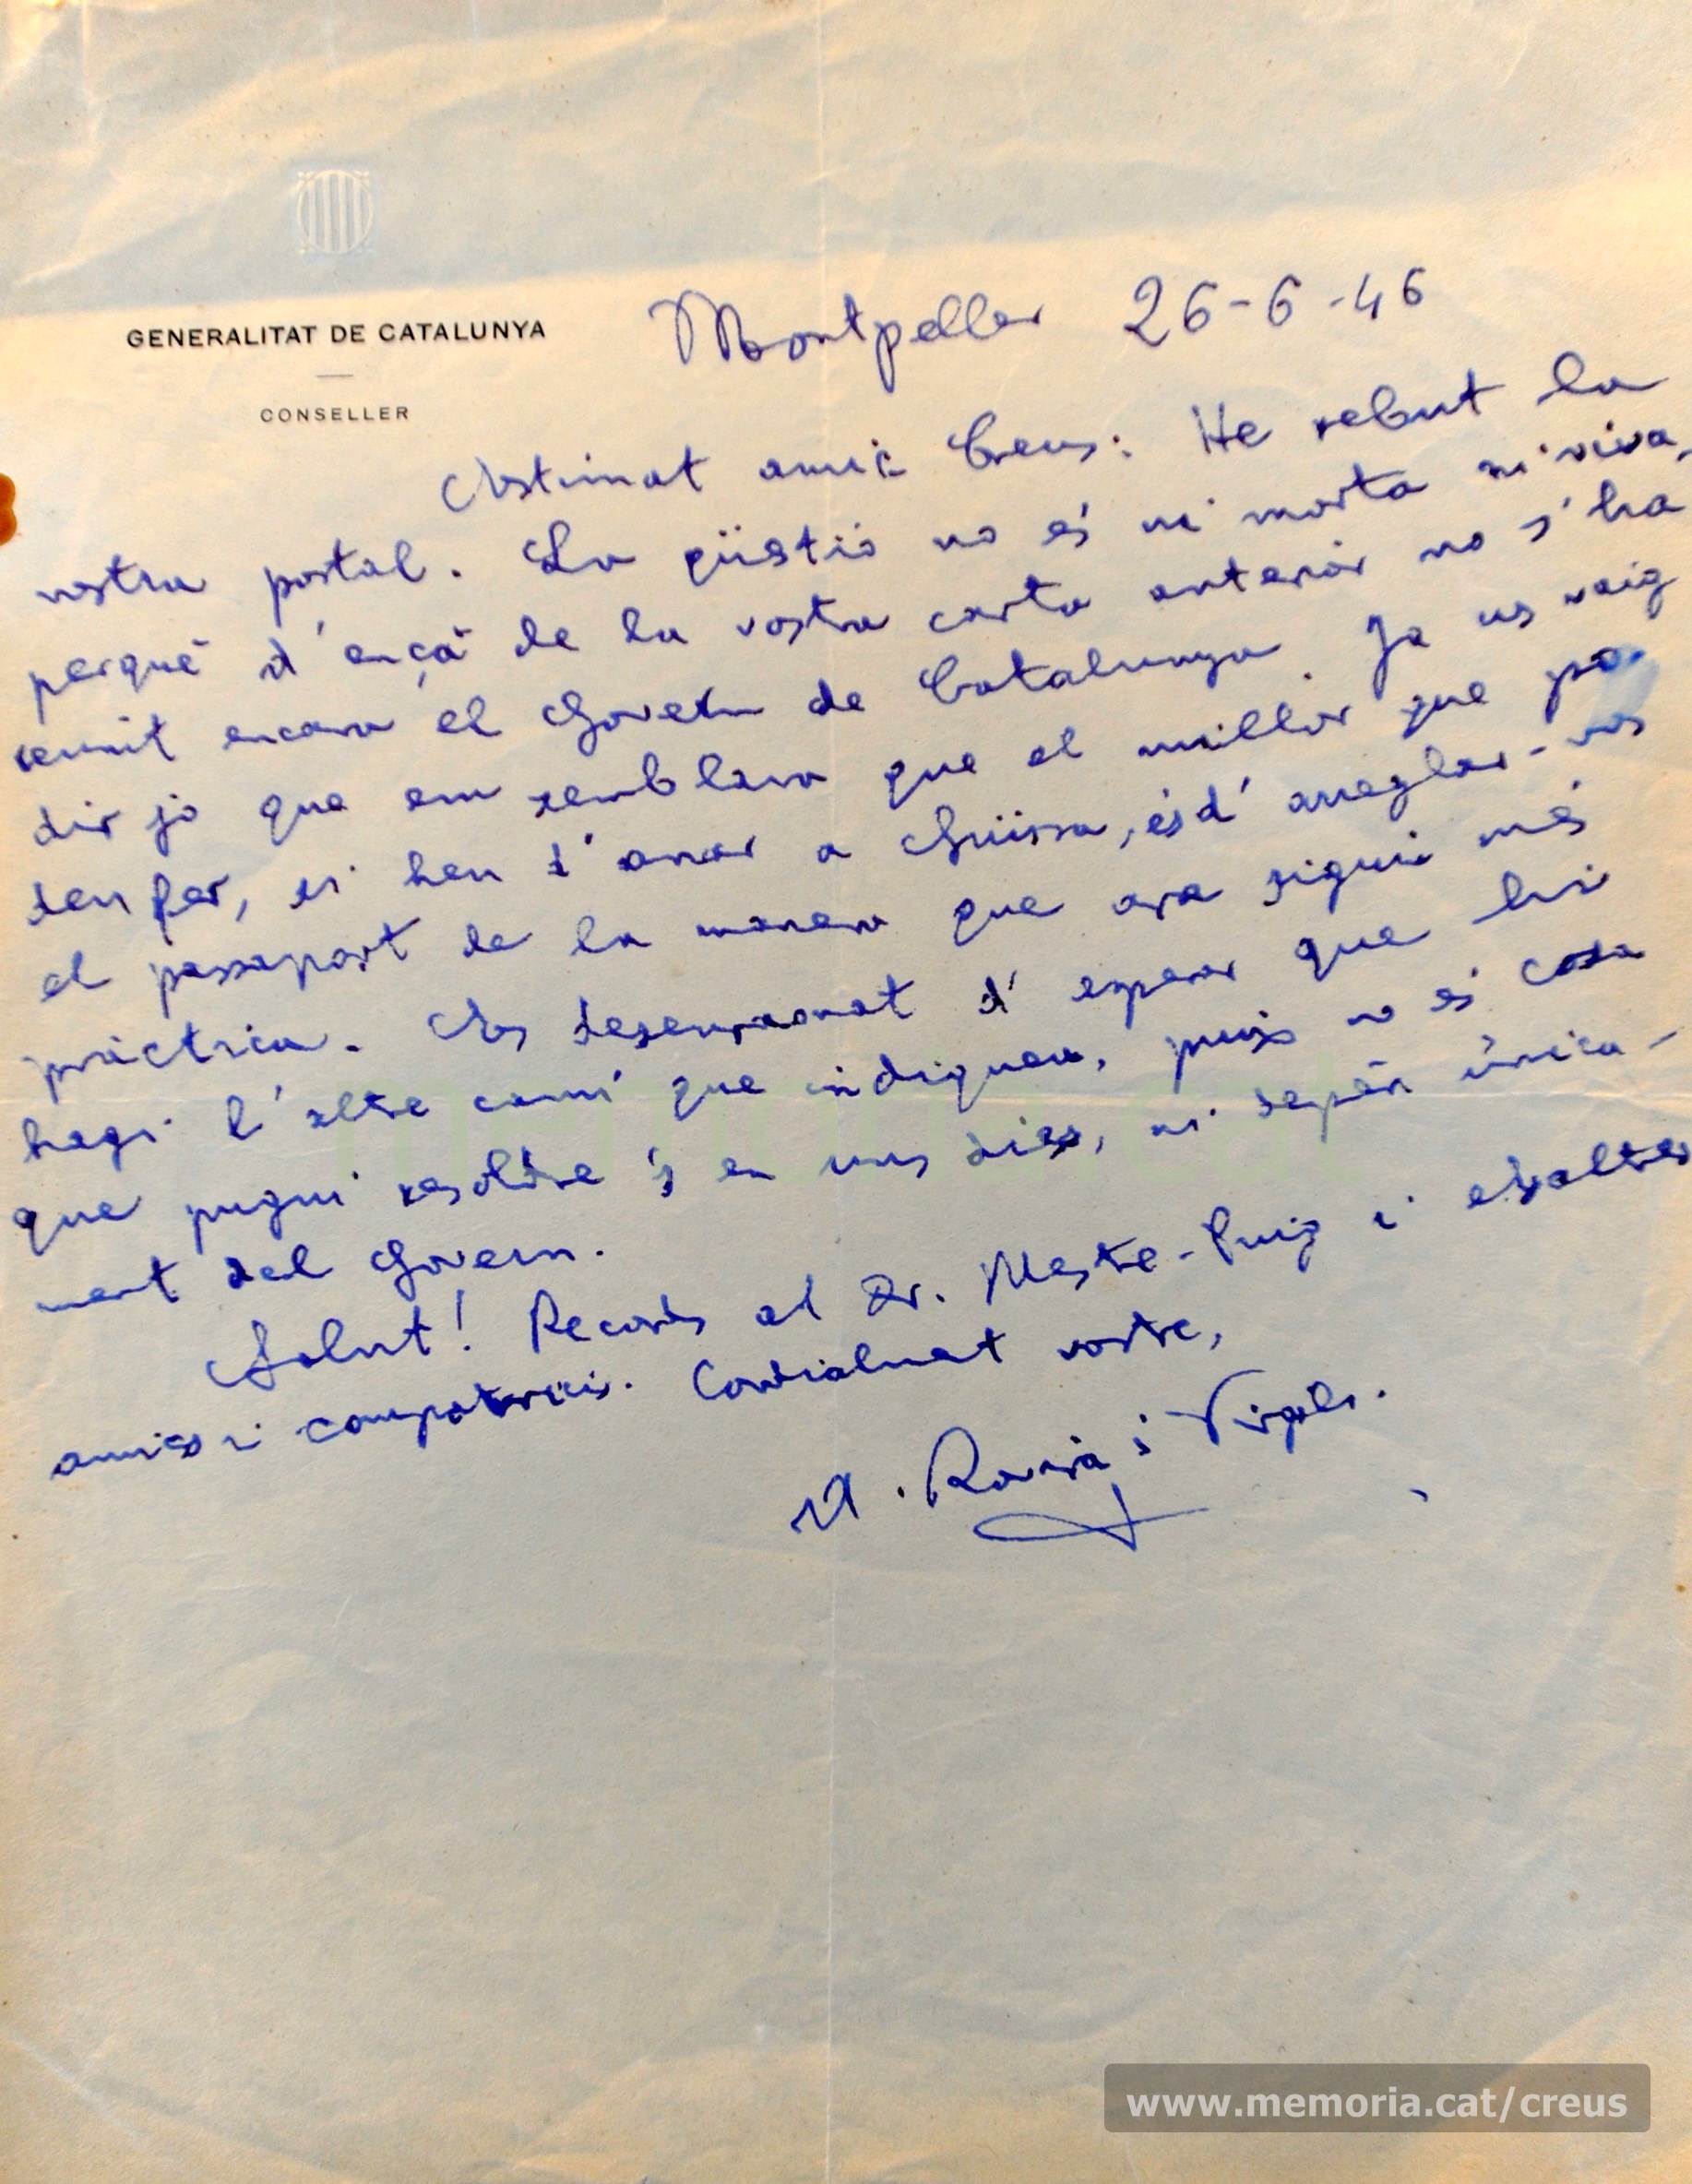 GENERALITAT DE CATALUNYA
CONSELLER
Montpeller 26-6-46
Estimat amic Creus: He rebut la
vostra postal. La qüestió no és ni morta ni viva,
perquè d'ençà de la vostra carta anterior no s'ha
reunit encara el Govern de Catalunya. Ja us vaig
dir jo que em semblava que el millor que po-
deu fer, si heu d'anar a Suïssa, és d'arreglar-vos
el passaport de la manera que ara sigui més
pràctica. És desenraonat d'esperar que hi
hagi l'altre camí que indiqueu, puix no és cosa
que pugui resoldre's en uns dies, ni depèn única-
ment del Govern.
Salut! Records al Dr. Mestre-Puig i als altres
amics i compatricis. Cordialment vostre,
A. Rovira i Virgili.
www.memoria.cat/creus